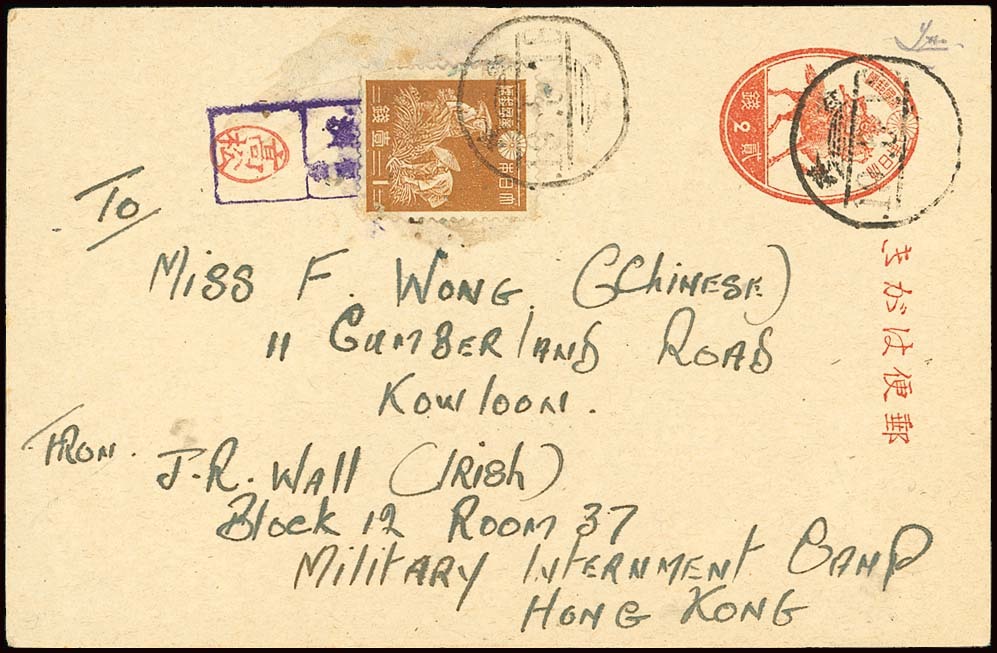 To
Miss F. Wong. (Chinese)
11 Cumberland Road
Kowloon.
From.
J.R. Wall (Irish)
Block 12 Room 37
Military Internment Camp
Hong Kong
高松
大日本
壹銭
1
貳銭
2
郵便はがき